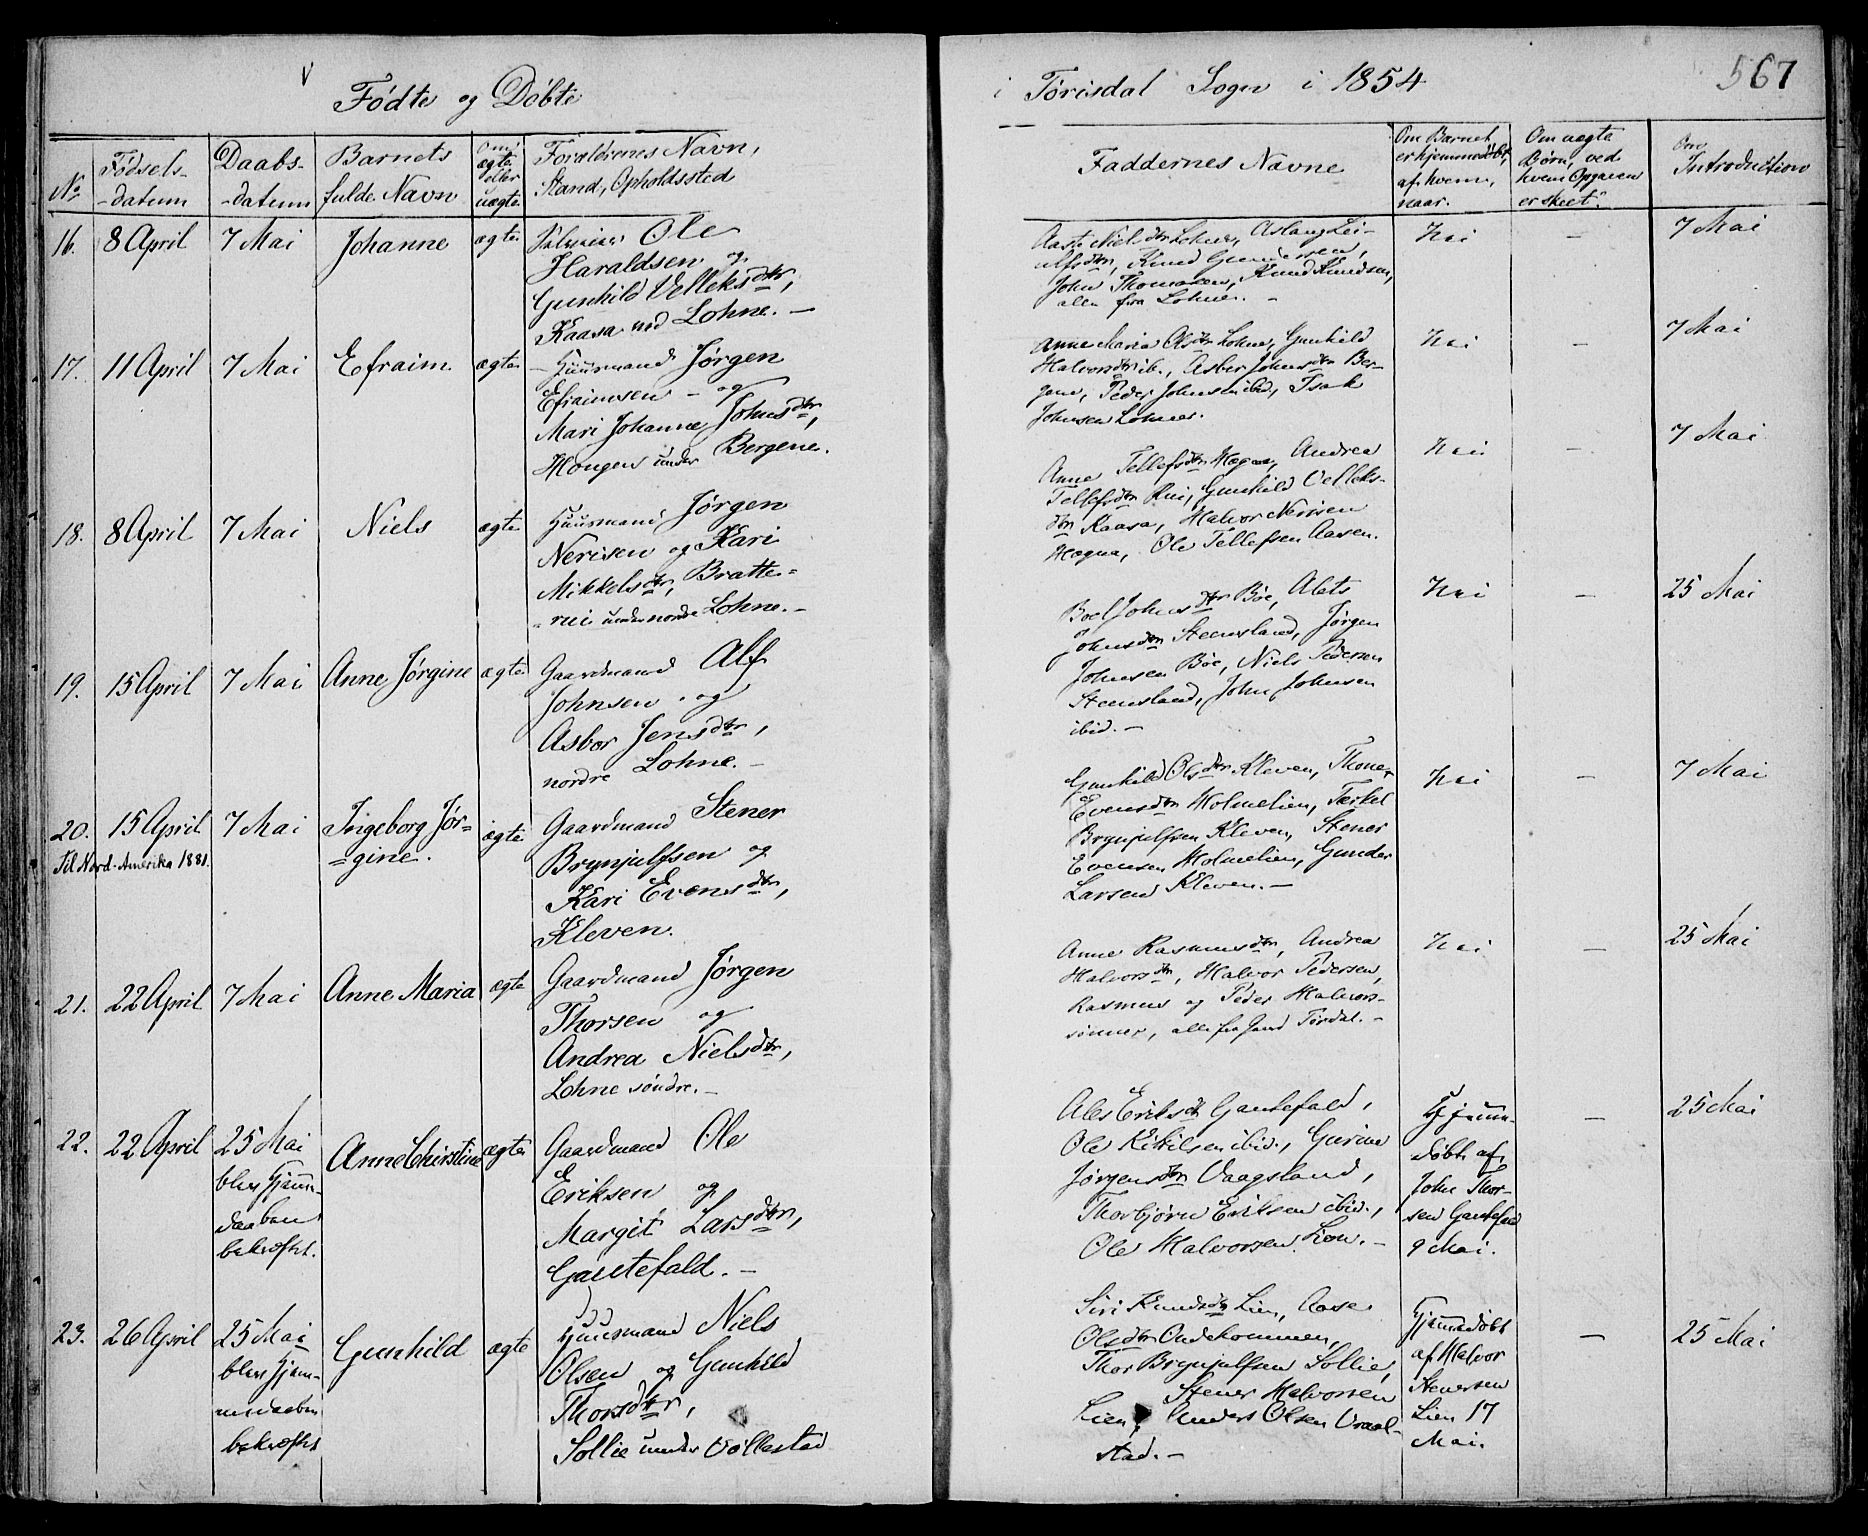 Fødte og Døbte
i Tørisdal Sogn i 1854
567
No
Fødsels-
-datum
Daabs-
-datum
Barnets
fulde Navn
Om
ægte
eller
uægte
Forældrenes Navn,
Stand, Opholdssted
Faddernes Navne
Om Barnet
er hjemmedøbt,
af hvem,
naar.
Om uægte
Børn, ved
hvem Opgaven
er skeet.
Om
Introduction
16. 8 April 7 Mai Johanne ægte
Ole
Haraldsen og
Gunhild Velleksdtr,
Kaasa ved Lohne. –
Aaste Nielsdtr Lohne, Aslaug Lei-
ulfsdtr, Knud Gundersen,
John Thomasen, Knud Knudsen,
alle fra Lohne. –
Nei – 7 Mai
17. 11 April 7 Mai Efraim ægte
Huusmand Jørgen
Efraimsen – og
Mari Johanne Johnsdtr,
Hougen under Bergene.
Anne Maria Olsdtr Lohne, Gunhild
Halvorsdtr ib., Asber Johnsdtr Ber-
gene, Peder Johnsen ibid, Isak
Johnsen Lohne.
Nei – 7 Mai
18. 8 April 7 Mai Niels ægte
Huusmand Jørgen
Nerisen og Kari
Mikkelsdtr, Bratte-
-rui under nordre Lohne. –
Anne Tellefsdtr Hegna, Andrea
Tellefsdtr Rui, Gunhild Velleks-
dtr Kaasa, Halvor Nerisen
Hegna, Ole Tellefsen Aasen.
Nei – 7 Mai
19. 15 April 7 Mai Anne Jørgine ægte
Gaardmand Alf
Johnsen og
Asbor Jensdtr,
nordre Lohne. –
Boel Johnsdtr Bøe, Alets
Johnsdtr Steensland, Jørgen
Johnsen Bøe, Niels Pedersen
Steensland, John Johnsen
ibid. –
Nei – 25 Mai
20. 15 April 7 Mai Ingeborg Jør=
=gine. ægte
Til Nord-Amerika 1881.
Gaardmand Stener
Brynjulfsen og
Kari Evensdtr,
Kleven.
Gunhild Olsdtr Kleven, Thone
Evensdtr Holmelien, Terkel
Brynjulfsen Kleven, Stener
Evensen Holmelien, Gunder
Larsen Kleven. –
Nei – 7 Mai
21. 22 April 7 Mai Anne Maria ægte
Gaardmand Jørgen
Thorsen og
Andrea Nielsdtr,
Lohne søndre. –
Anne Rasmusdtr, Andrea
Halvorsdtr, Halvor Pedersen,
Rasmus og Peder Halvors-
sønner, alle fra Tørdal. –
Nei – 25 Mai
22. 22 April 25 Mai
blev Hjem-
daaben
bekræftet.
Anne Chirstine ægte
Gaardmand Ole
Eriksen og
Margit Larsdtr,
Gautefald. –
Ales Eriksdt Gautefald,
Ole Kittilsen ibid., Gurine
Jørgensdtr Vaagsland,
Thorbjørn Eriksen ibid.,
Ole Halvorsen Lien. –
Hjem-
døbt af
John Thor-
sen Gautefald
9 Mai.
– 25 Mai
23. 26 April 25 Mai
blev Hjem-
medaaben
bekræftet
Gunhild ægte
Huusmand Niels
Olsen og Gunhild
Thorsdtr,
Sollie under Vøllestad
Siri Knudsdtr Lien, Aase
Olsdtr
Thor Brynjulfsen Sollie,
Stener Halvorsen
Lien, Anders Olsen Vraal-
stad. –
Hjemmedøbt
af Halvor
Stenersen
Lien 17
Mai.
– 25 Mai